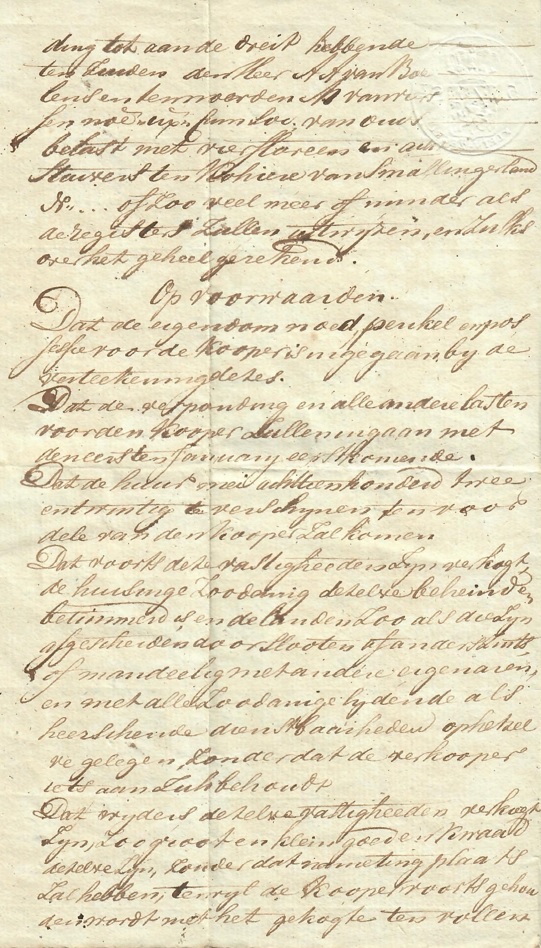 ding tot aan de dreit hebbende
ten Zuiden den Heer A A van Boe
lens en ten noorden M van
belast met vier floreen en acht
Stuivers ten Kohiere van Smallingerland
N. ... of Zoo veel meer of minder als
de registers Zullen uitwyzen, en Zulks
over het geheel gerekend.
Op voorwaarden.
Dat de eigendom nood, perykel en pos
sessie voor de Kooper is ingegaan by de
verteekening dezes.
Dat de verponding en alle andere lasten
voor den Kooper Zullen ingaan met
den eersten January eerstkomende.
Dat de huur mei achttienhonderd twee
entwintig te verschynen ten voor
dele van den Kooper Zal komen
Dat voorts deze vastigheeden Zyn verkogt,
de huisinge Zoodanig dezelve beheind en
betimmerd is en de landen Zoo als die Zyn
afgescheiden door Slooten of anderZints
of mandeelig met andere eigenaren,
en met alle Zoodanige lydende als
heerschende dienstbaarheden op het zel
ve gelegen, Zonder dat de verkooper
iets aan Zich behoudt
Dat wyders dezelve vastigheeden verkogt
Zyn, Zoo groot en klein goed en kwaad
dezelve Zyn, Zonder dat nameting plaats
Zal hebben, terwyl de Kooper voorts gehou
den wordt met het gekogte ten vollen